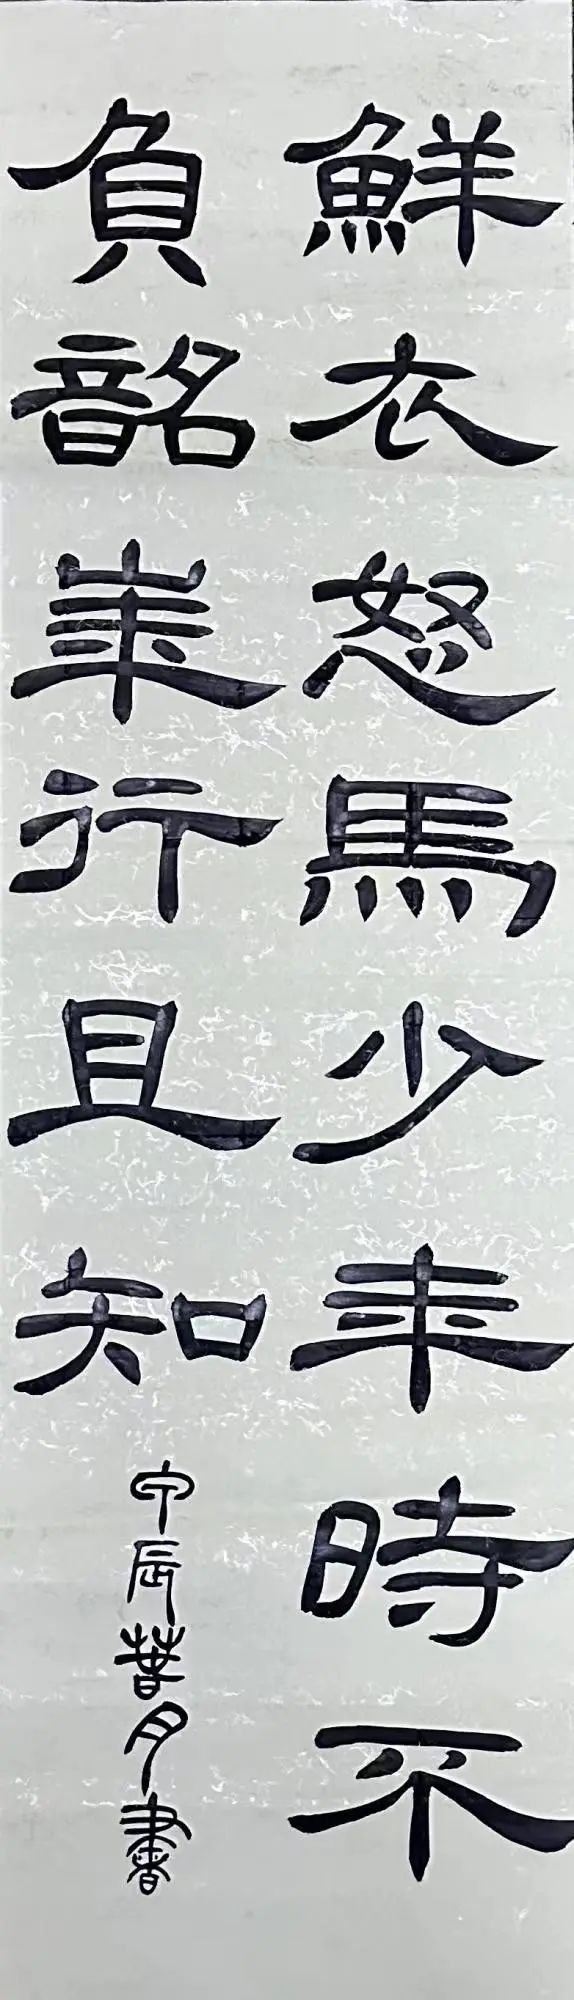 鮮衣怒馬少年時不
負韶華行且知
甲辰月書